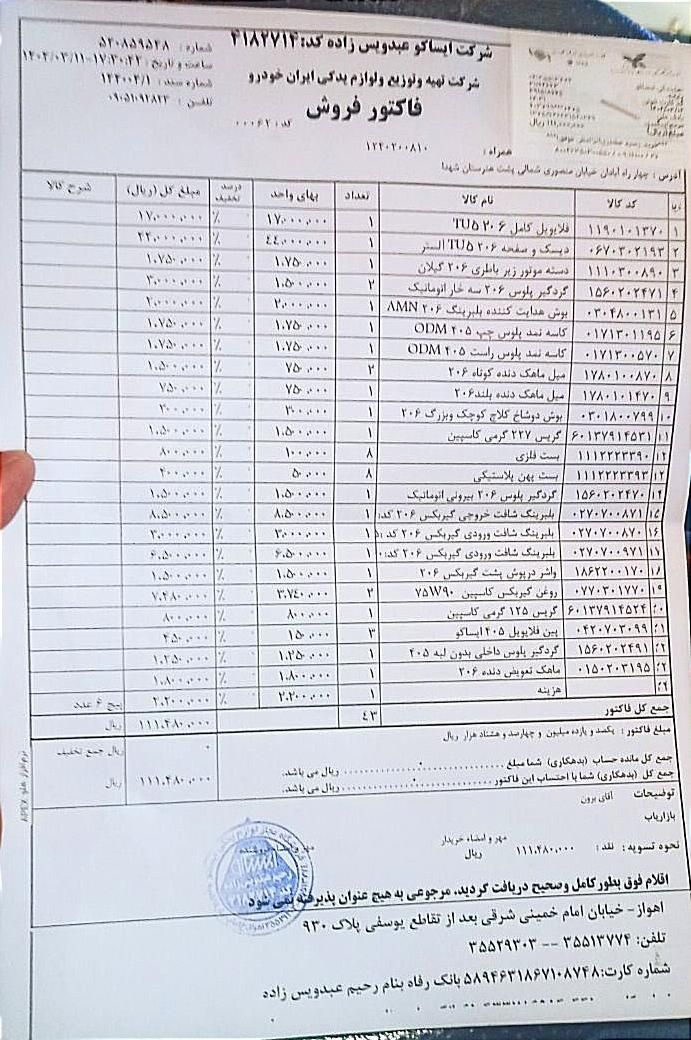 شرکت ایساکو عبدویس زاده کد:۴۱۸۲۷۱۴
شرکت تهیه وتوزیع ولوازم یدکی ایران خودرو
فاکتور فروش
شماره : ۵۳۰۸۵۹۵۴۸
ساعت و تاریخ : ۱۷:۳۰:۴۲-۱۴۰۲/۰۳/۱۱
شماره سند : ۱۲۲۰۰۴/۱
تلفن : ۰۹۰۵۱۰۹۲۸۲۳
کد : ۰۰۰۶۲
همراه : ۱۲۴۰۲۰۰۸۱۰
آدرس : چهار راه آبادان خیابان منصوری شمالی پشت هنرستان شهدا
کد کالا نام کالا تعداد بهای واحد درصد تخفیف مبلغ کل (ریال) شرح کالا
۱ ۱۱۹۰۱۰۱۳۷۰ فلایویل کامل ۲۰۶ TU5 ۱ ۱۷.۰۰۰.۰۰۰ ٪ ۱۷.۰۰۰.۰۰۰
۲ ۰۶۷۰۳۰۲۱۹۳ دیسک و صفحه ۲۰۶ TU5 الستر ۱ ۴۴.۰۰۰.۰۰۰ ٪ ۴۴.۰۰۰.۰۰۰
۳ ۱۱۱۰۳۰۰۸۹۰ دسته موتور زیر باطری ۲۰۶ گیلان ۱ ۱.۷۵۰.۰۰۰ ٪ ۱.۷۵۰.۰۰۰
۴ ۱۵۶۰۲۰۲۴۷۱ گردگیر پلوس ۲۰۶ سه خار اتوماتیک ۲ ۱.۵۰۰.۰۰۰ ٪ ۳.۰۰۰.۰۰۰
۵ ۰۳۰۴۸۰۰۱۳۱ بوش هدایت کننده بلبرینگ ۲۰۶ AMN ۱ ۲.۰۰۰.۰۰۰ ٪ ۲.۰۰۰.۰۰۰
۶ ۰۱۷۱۳۰۱۱۹۵ کاسه نمد پلوس چپ ۴۰۵ ODM ۱ ۱.۷۵۰.۰۰۰ ٪ ۱.۷۵۰.۰۰۰
۷ ۰۱۷۱۳۰۰۵۷۰ کاسه نمد پلوس راست ۴۰۵ ODM ۱ ۱.۷۵۰.۰۰۰ ٪ ۱.۷۵۰.۰۰۰
۸ ۱۷۸۰۱۰۰۸۷۰ میل ماهک دنده کوتاه ۲۰۶ ۲ ۷۵۰.۰۰۰ ٪ ۱.۵۰۰.۰۰۰
۹ ۱۷۸۰۱۰۱۴۷۰ میل ماهک دنده بلند۲۰۶ ۱ ۷۵۰.۰۰۰ ٪ ۷۵۰.۰۰۰
۱۰ ۰۳۰۱۸۰۰۷۹۹ بوش دوشاخ کلاچ کوچک وبزرگ ۲۰۶ ۱ ۳۰۰.۰۰۰ ٪ ۳۰۰.۰۰۰
۱۱ ۶۰۱۳۷۹۱۴۵۳۱ گریس ۲۲۷ گرمی کاسپین ۱ ۱.۵۰۰.۰۰۰ ٪ ۱.۵۰۰.۰۰۰
۱۲ ۱۱۱۲۲۲۳۳۹۰ بست فلزی ۸ ۱۰۰.۰۰۰ ٪ ۸۰۰.۰۰۰
۱۳ ۱۱۱۲۲۲۳۳۹۳ بست پهن پلاستیکی ۸ ۵۰.۰۰۰ ٪ ۴۰۰.۰۰۰
۱۴ ۱۵۶۰۲۰۲۴۷۰ گردگیر پلوس ۲۰۶ بیرونی اتوماتیک ۱ ۱.۵۰۰.۰۰۰ ٪ ۱.۵۰۰.۰۰۰
۱۵ ۰۲۷۰۷۰۰۸۷۱ بلبرینگ شافت خروجی گیربکس ۲۰۶ کد: ۱ ۸.۵۰۰.۰۰۰ ٪ ۸.۵۰۰.۰۰۰
۱۶ ۰۲۷۰۷۰۰۸۷۰ بلبرینگ شافت ورودی گیربکس ۲۰۶ کد: ۱ ۳.۰۰۰.۰۰۰ ٪ ۳.۰۰۰.۰۰۰
۱۷ ۰۲۷۰۷۰۰۹۷۱ بلبرینگ شافت ورودی گیربکس ۲۰۶ کد: ۱ ۶.۵۰۰.۰۰۰ ٪ ۶.۵۰۰.۰۰۰
۱۸ ۱۸۶۲۲۰۰۱۷۰ واشر درپوش پشت گیربکس ۲۰۶ ۱ ۱.۵۰۰.۰۰۰ ٪ ۱.۵۰۰.۰۰۰
۱۹ ۰۷۷۰۳۰۱۷۷۰ روغن گیربکس کاسپین ۷۵W۹۰ ۲ ۳.۷۴۰.۰۰۰ ٪ ۷.۴۸۰.۰۰۰
۲۰ ۶۰۱۳۷۹۱۴۵۲۴ گریس ۱۲۵ گرمی کاسپین ۱ ۸۰۰.۰۰۰ ٪ ۸۰۰.۰۰۰
۲۱ ۰۴۲۰۷۰۳۰۹۹ پین فلایویل ۴۰۵ ایساکو ۳ ۱۵۰.۰۰۰ ٪ ۴۵۰.۰۰۰
۲۲ ۱۵۶۰۲۰۲۴۹۱ گردگیر پلوس داخلی بدون لبه ۴۰۵ ۱ ۱.۲۵۰.۰۰۰ ٪ ۱.۲۵۰.۰۰۰
۲۳ ۰۱۵۰۲۰۳۱۹۵ ماهک تعویض دنده ۲۰۶ ۱ ۱.۸۰۰.۰۰۰ ٪ ۱.۸۰۰.۰۰۰
۲۴ هزینه ۱ ۲.۲۰۰.۰۰۰ ٪ ۲.۲۰۰.۰۰۰ پیچ ۶ عدد
جمع کل فاکتور ۴۳ ۱۱۱.۴۸۰.۰۰۰ ریال
مبلغ فاکتور : یکصد و یازده میلیون و چهارصد و هشتاد هزار ریال
۰ ریال جمع تخفیف
جمع کل مانده حساب (بدهکاری) شما مبلغ ۰ ریال می باشد.
جمع کل (بدهکاری) شما با احتساب این فاکتور ۰ ریال می باشد.
۱۱۱.۴۸۰.۰۰۰ ریال
نرم‌افزار هلو APEX
توضیحات آقای برون
بازاریاب
نحوه تسویه : نقد : ۱۱۱.۴۸۰.۰۰۰ ریال
مهر و امضاء خریدار
اقلام فوق بطور کامل وصحیح دریافت گردید، مرجوعی به هیچ عنوان پذیرفته نمی شود
اهواز- خیابان امام خمینی شرقی بعد از تقاطع یوسفی پلاک ۹۳۰
تلفن: ۳۵۵۱۳۷۷۴ -- ۳۵۵۲۹۳۰۳
شماره کارت:۵۸۹۴۶۳۱۸۶۷۱۰۸۷۴۸ بانک رفاه بنام رحیم عبدویس زاده